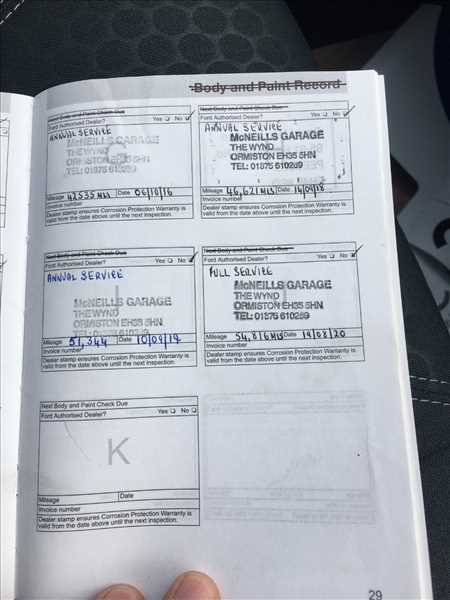 Body and Paint Record
Next Body and Paint Check Due
Ford Authorised Dealer? Yes No
ANNUAL SERVICE
McNEILLS GARAGE
THE WYND
ORMISTON EH35 5HN
TEL: 01875 610269
Mileage 42535 MLS Date 06/10/16
Invoice number
Dealer stamp ensures Corrosion Protection Warranty is
valid from the date above until the next inspection.
Next Body and Paint Check Due
Ford Authorised Dealer? Yes No
ANNUAL SERVICE
McNEILLS GARAGE
THE WYND
ORMISTON EH35 5HN
TEL: 01875 610269
Mileage 46,621 MLS Date 14/09/18
Invoice number
Dealer stamp ensures Corrosion Protection Warranty is
valid from the date above until the next inspection.
Next Body and Paint Check Due
Ford Authorised Dealer? Yes No
ANNUAL SERVICE
I
McNEILLS GARAGE
THE WYND
ORMISTON EH35 5HN
TEL: 01875 610269
Mileage 51,344 Date 10/09/19
Invoice number
Dealer stamp ensures Corrosion Protection Warranty is
valid from the date above until the next inspection.
Next Body and Paint Check Due
Ford Authorised Dealer? Yes No
FULL SERVICE
McNEILLS GARAGE
THE WYND
ORMISTON EH35 5HN
TEL: 01875 610269
Mileage 54,816 MLS Date 19/08/20
Invoice number
Dealer stamp ensures Corrosion Protection Warranty is
valid from the date above until the next inspection.
Next Body and Paint Check Due
Ford Authorised Dealer? Yes No
K
Mileage Date
Invoice number
Dealer stamp ensures Corrosion Protection Warranty is
valid from the date above until the next inspection.
29